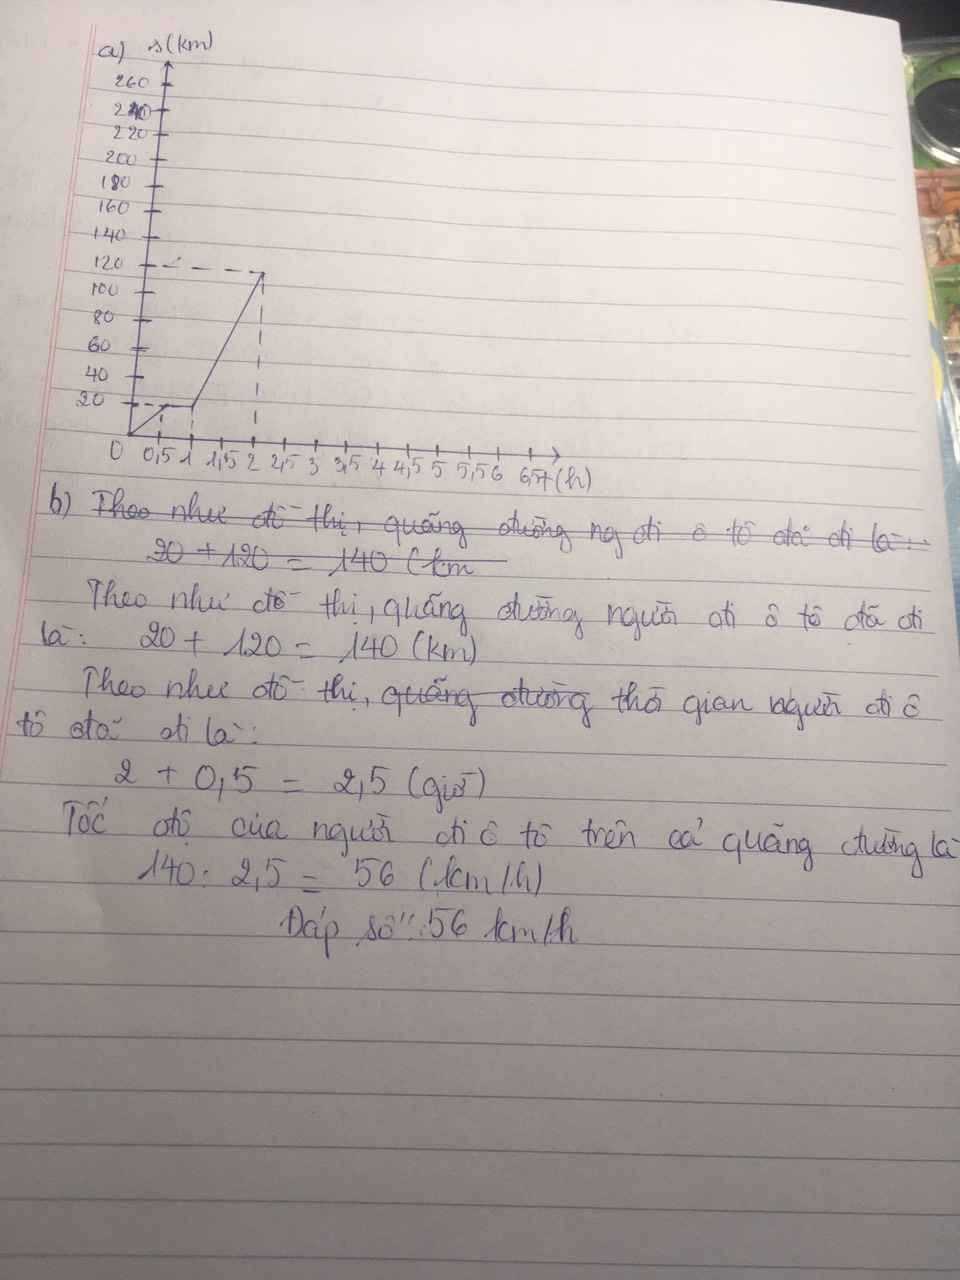 a) s(km)
260
240
220
200
180
160
140
120
100
80
60
40
20
0 0,5 1 1,5 2 2,5 3 3,5 4 4,5 5 5,5 6 6,5 t(h)
b) Theo như đồ thị, quãng đường ng đi ô tô đã đi là:
20 + 120 = 140 (km
Theo như đồ thị, quãng đường người đi ô tô đã đi
là: 20 + 120 = 140 (km)
Theo như đồ thị, quãng đường thời gian người đi ô
tô đã đi là:
2 + 0,5 = 2,5 (giờ)
Tốc độ của người đi ô tô trên cả quãng đường là
140 : 2,5 = 56 (km/h)
Đáp số: 56 km/h